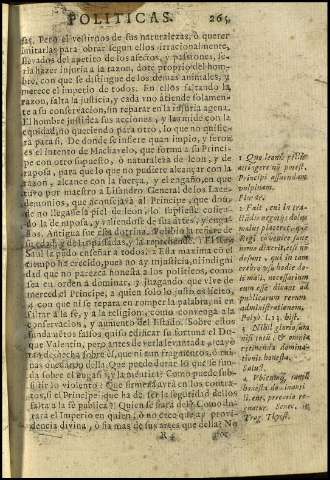 POLITICAS. 265
sas, Pero el vestirnos de sus naturalezas, ò querer
imitarlas para obrar segun ellos irracionalmente,
llevados del apetito de los afectos, y passiones, se-
ria hazer injuria a la razon, dote proprio del hom-
bre, con que se distingue de los demas animales, y
merece el imperio de todos. En ellos faltando la
razon, falta la justicia, y cada vno atiende solamen-
te a su conservacion, sin reparar en la injuria agena.
El hombre justifica sus acciones, y las mide con la
equidad, no queriendo para otro, lo que no quisie-
ra para si. De donde se infiere quan impio, y feroz
es el intento de Machavelo, que forma a su Princi-
pe con otro supuesto, ò naturaleza de leon, y de
raposa, para que lo que no pudiere alcançar con la
razon, alcance con la fuerça, y el engaño, en que
tuvo por maestro a Lisandro General de los Lace-
demonios, que aconsejava al Principe, que don-
de no llegase la piel de leon, lo supliesse cosien-
do la de raposa, y valiendose de sus artes, y enga-
ños. Antigua fue esta dotrina. Polibio la refiere de
su edad, y de las passadas, y la reprehende. El Rey
Saul la pudo enseñar a todos. Esta maxima con el
tiempo ha crecido, pues no ay injusticia, ni indigni-
dad que no parezca honesta a los politicos, como
sea en orden a dominar, y juzgando que vive de
merced el Principe, a quien solo lo justo es licito,
con que ni se repara en romper la palabra, ni en
faltar a la fè, y a la religion, como convenga a la
conservacion, y aumento del Estado. Sobre estos
fundamentos falsos quiso edificar su fortuna el Du-
que Valentin, pero antes de verla levantada
de hecha sobre èl, que ni aun fragmentos, ò rui-
nas quedaron della. Que puede durar lo que se fun-
da sobre el engaño, y la mentira? Como puede sub-
sistir lo violento? Que firmeza avrà en los contra-
tos, si el Principe que ha de ser la seguridad dellos
falta a la fe publica? Quien se fiarà dèl? Como du-
rarà el Imperio en quien, ò no cree que ay provi-
dencia divina, ò fia mas de sus artes que della? No
R
1 Quo leonis pellis
attingere non potest,
Principi assuendam
vulpinam.
Plutar.
2 Fuit, cui in tra-
ctandis negotijs dolus
malus placeret, que
Regi convenire sane
nemo dixerit, etsi non
desunt, qui in tam
crebro usu hodie do-
li mali, necessarium
eum esse dicant ad
publicarum rerum
administrationem,
Polyb. l. 13. hist.
3 Nihil gloriosum
nisi tutum, & omnia
retinendæ domina-
tionis honesta.
Salust.
4. Vbicumque tantum
honesta dominan-
ti licent, precario re-
gnatur. Senec. in
Trag. Thyest.